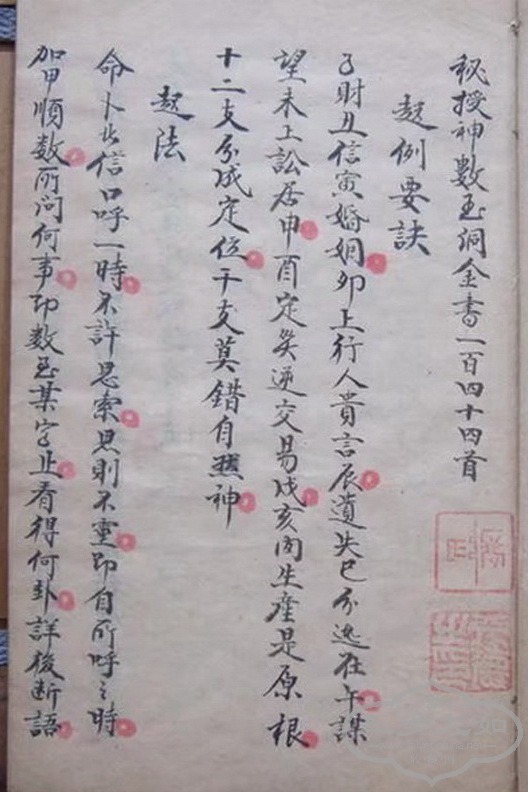 秘授神數玉洞金書一百四十四首
起例要訣
子財丑信寅婚姻卯上行人貴言辰遺失巳分逃在午謀
望未上訟居申酉定客通交易戌亥問生產是原根
十二支分成定位干支莫錯自照神
起法
命卜者信口呼一時不許思索思則不靈即自所呼之時
加甲順數所问何事即數至某字止看得何卦詳後斷語
如